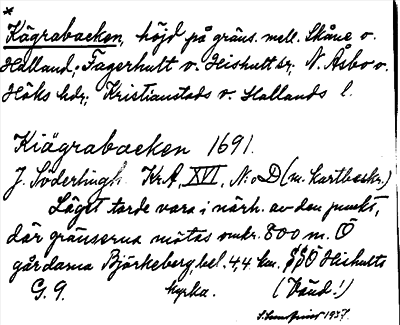 *
Kägrabacken, höjd på gräns. mell. Skåne o.
Halland; Fagerhult o. Hishult sr; N. Åsbo o.
Höks hdr; Kristianstads o. Hallands l.
Kiägrabacken 1691.
J. Söderlingh. Kr.A. XVI, N:o D (m. kartbeskr.)
Läget torde vara i närh. av den punkt,
där gränserna mötas omkr. 800 m. Ö
gårdarna Björkeberg, bel. 4,4 km. SSÖ Hishults
G. 9. kyrka. (Vänd!)
1937.